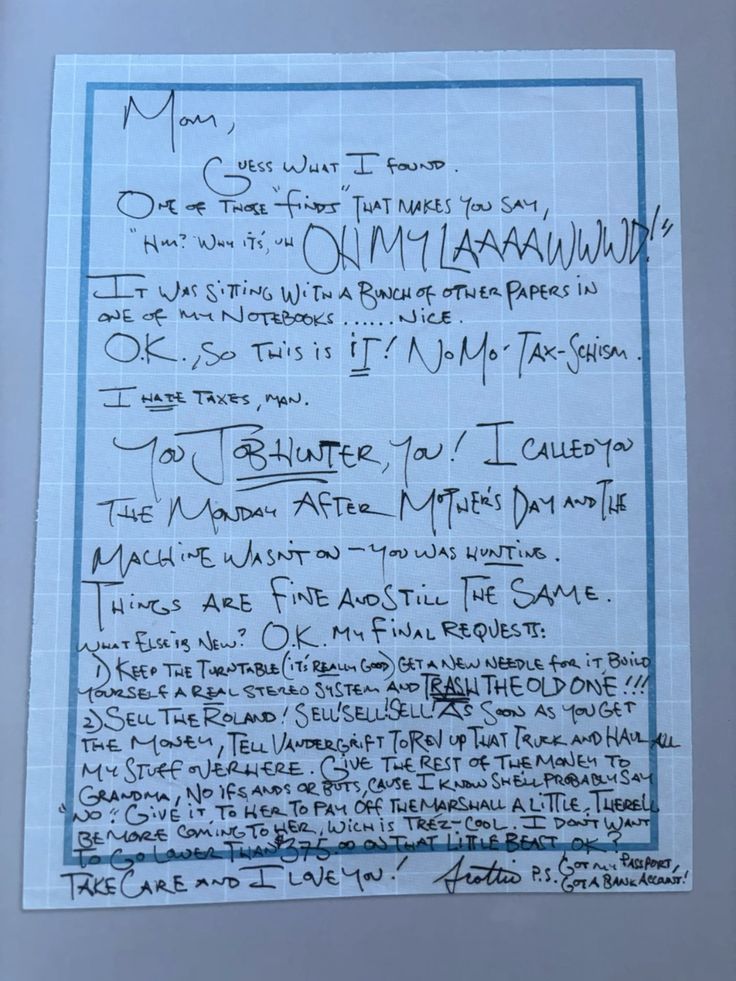 Mom,
Guess What I found.
One of those "finds" that makes you say,
"Hm? Why it's, uh OH MY LAAAAWWWD!"
It was sitting with a bunch of other papers in
one of my notebooks ...... nice.
O.K., so this is it! No Mo' Tax-Schism.
I hate taxes, man.
You Job Hunter, you! I called you
the Monday after Mother's Day and the
machine wasn't on — you was hunting.
Things are fine and still the same.
What else is new? O.K. My final requests:
1) Keep the turntable (it's really good) get a new needle for it, build
yourself a real stereo system and TRASH the old one!!!
2) Sell the Roland! Sell! Sell! Sell! As soon as you get
the money, tell Vandergrift to rev up that truck and haul all
my stuff over here. Give the rest of the money to
Grandma, no ifs ands or buts, cause I know she'll probably say
"no". Give it to her to pay off the Marshall a little. There'll
be more coming to her, wich is tréz-cool. I don't want
to go lower than $375.00 on that little beast OK?
Take care and I love you! Scottie P.S. Got my passport,
Got a bank account!